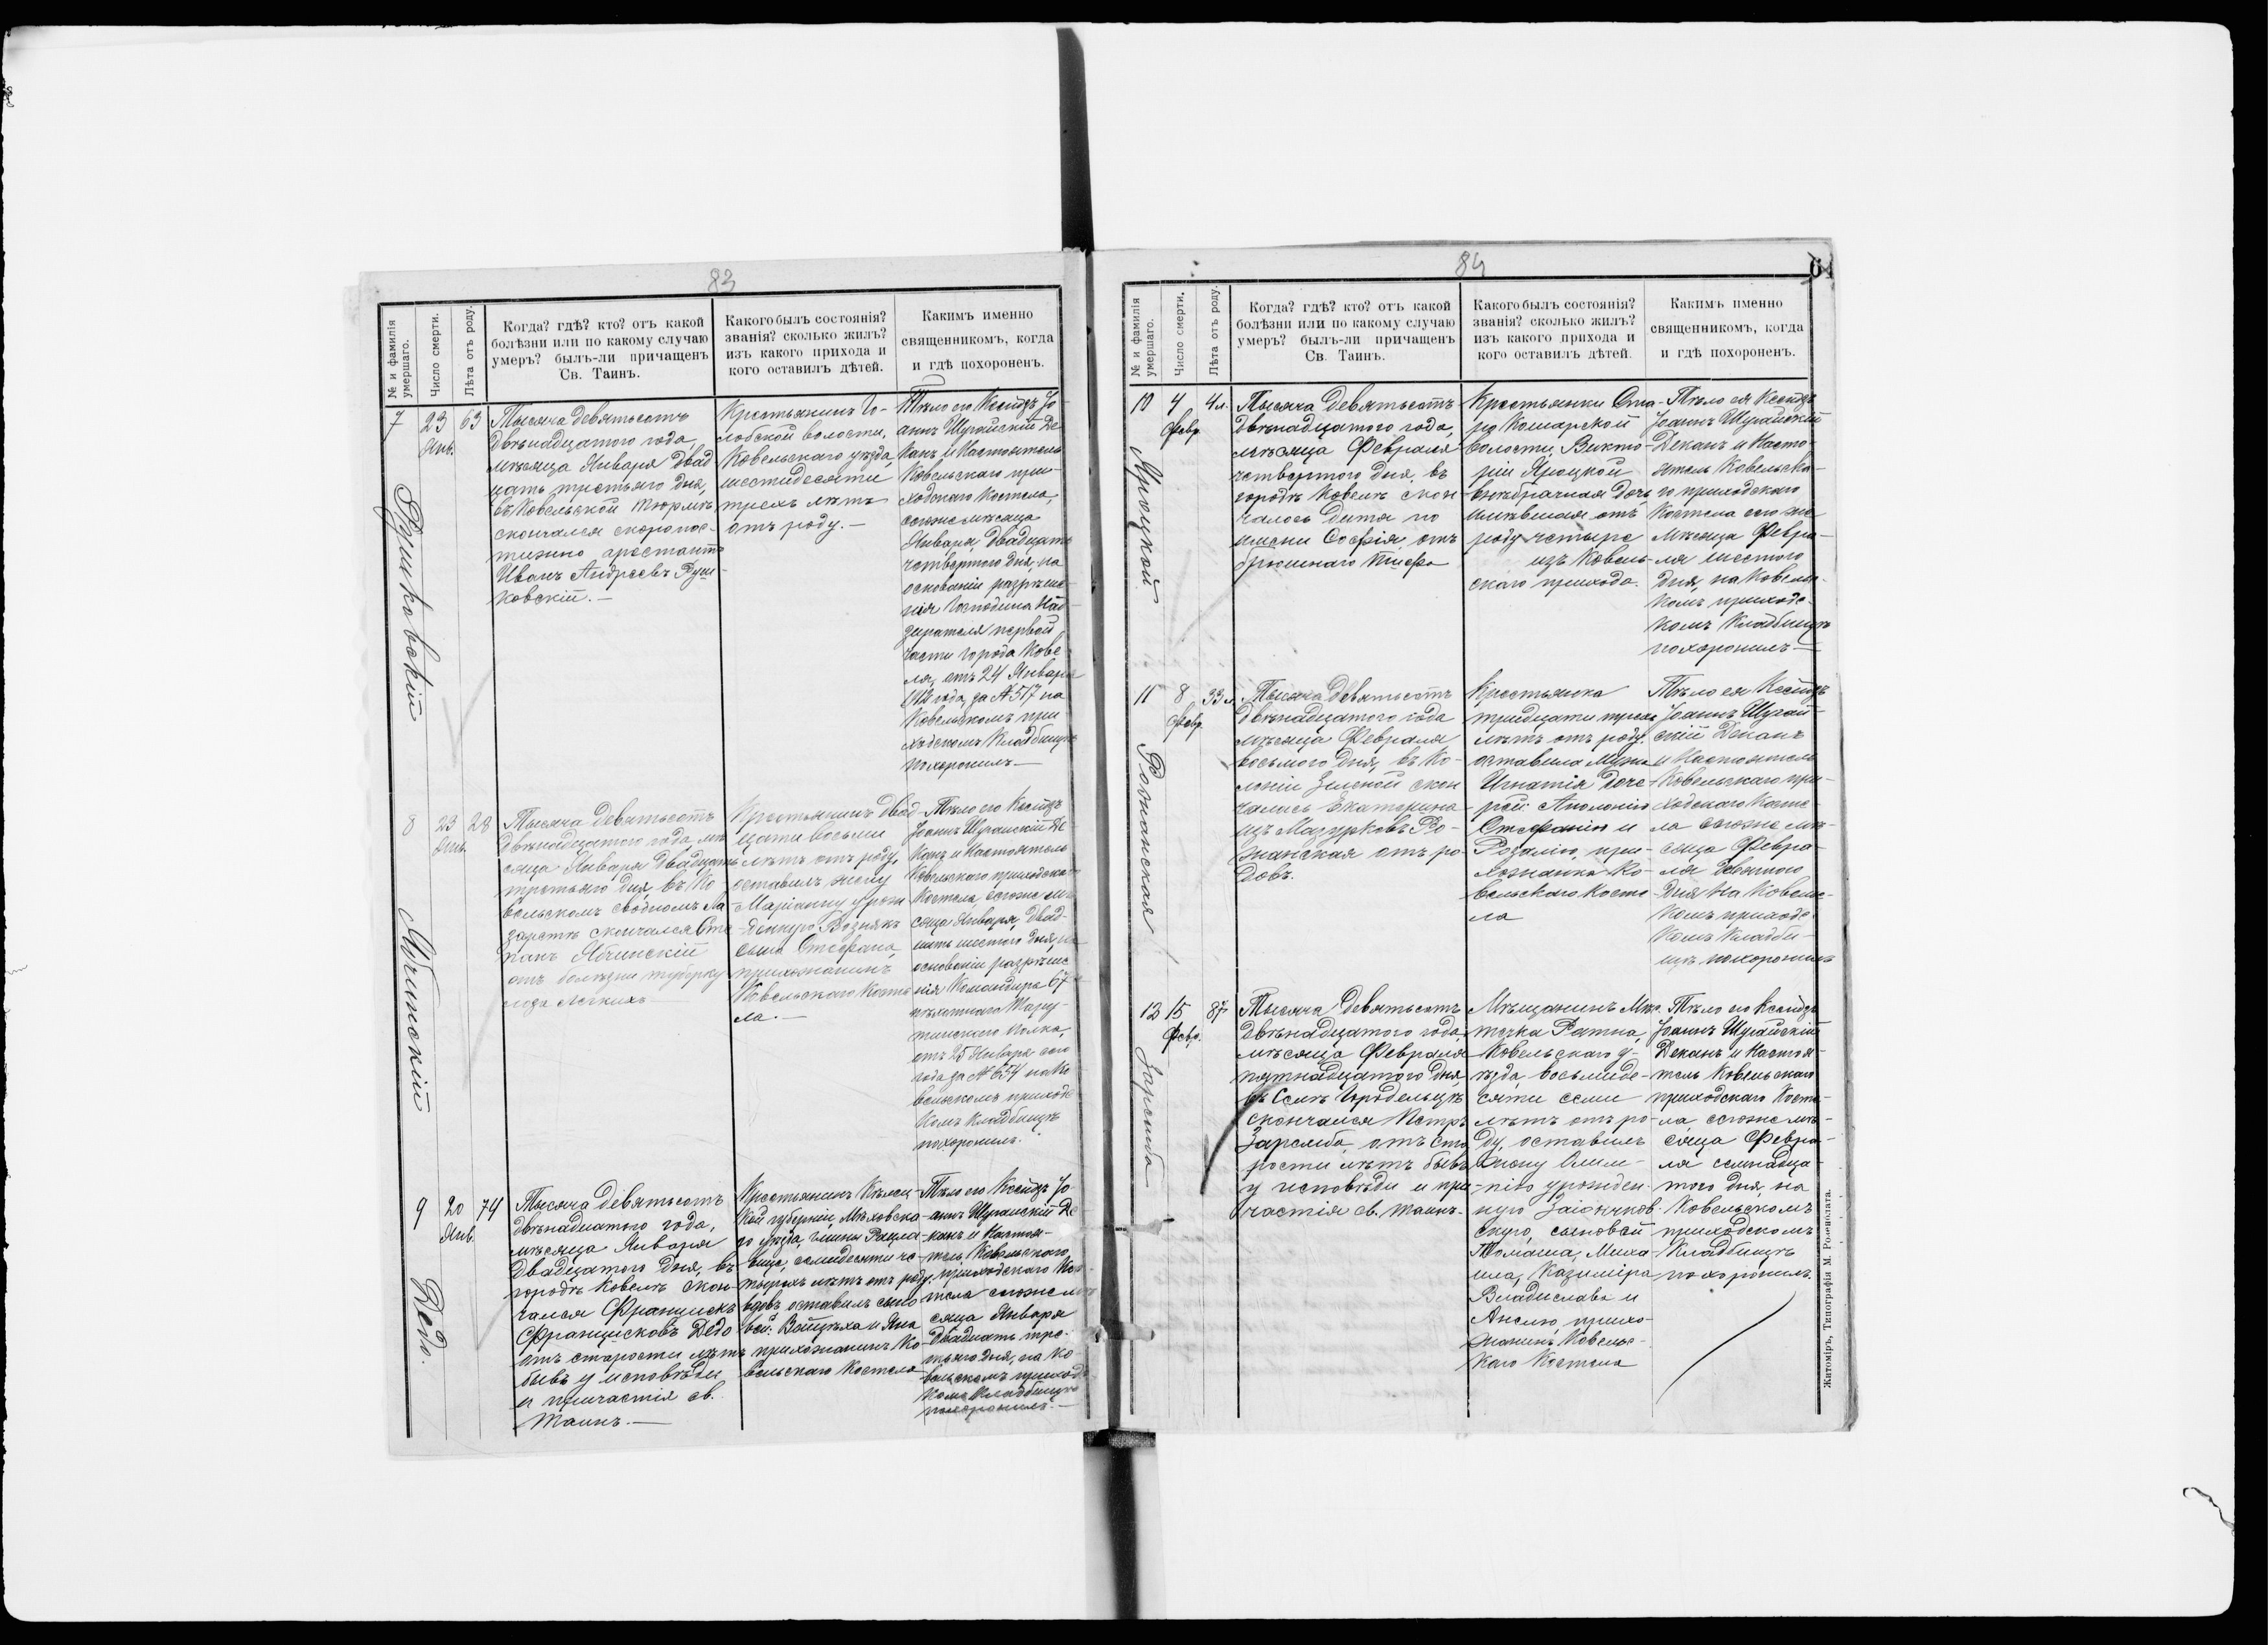 83
№ и фамилія умершаго.
Число смерти.
Лѣта отъ роду.
Когда? гдѣ? кто? отъ какой
болѣзни или по какому случаю
умеръ? былъ-ли причащенъ
Св. Таинъ.
Какого былъ состоянія?
званія? сколько жилъ?
изъ какого прихода и
кого оставилъ дѣтей.
Какимъ именно
священникомъ, когда
и гдѣ похороненъ.
7
23 Янв.
63
Тысяча девятьсотъ
двѣнадцатого года,
мѣсяца Января двад
цать третьяго дня,
въ Ковельской тюрмѣ
скончался скоропос-
тижно арестантъ
Иванъ Андреевъ Руш-
ковскій.—
Крестьянинъ Го-
лобской волости,
Ковельскаго уѣзда,
шестидесяти
трехъ лѣтъ
отъ роду.—
Тѣло его Ксендзъ Іо-
аннъ Шугайскій Де-
канъ и Настоятель
Ковельскаго при-
ходскаго Костела,
сегоже мѣсяца
Января, двадцать
четвертого дня, на
основаніи разрѣше-
нія Господина Над-
зирателя первой
части города Кове-
ля, отъ 24 Января
1912 года, за № 517 на
Ковельскомъ при
ходскомъ Кладбищѣ
похоронилъ—
Рушковскій
8
23 Янв.
28
Тысяча девятьсотъ
двѣнадцатого года, мѣ-
сяца Января двадцать
третьяго дня, въ Ко
вельскомъ сводномъ ла-
заретѣ скончался Сте
панъ Ябчинскій
отъ болѣзни туберку
леза легкихъ—
Крестьянинъ двад-
цати восьми
лѣтъ отъ роду,
оставилъ жену
Маріанну урож-
денную Вознякъ
сына Стефана,
прихожанинъ
Ковельскаго Косте
ла.—
Тѣло его Ксендзъ
Іоаннъ Шугайскій Де-
канъ и Настоятель
Ковельскаго приходскаго
Костела, сегоже мѣ-
сяца Января, двад-
цать шестого дня, на
основаніи разрѣше
нія Командира 67
пѣхотнаго Тару-
тинскаго полка,
отъ 25 Января сего
года за № 654 на Ко
вельскомъ приходс
комъ Кладбищѣ
похоронилъ.
Ябчинскій
9
20 Янв.
74
Тысяча девятьсотъ
двѣнадцатого года,
мѣсяца Января
двадцатого дня, въ
городѣ Ковелѣ скон-
чался Францискъ
Францисковъ Дедо
отъ старости лѣтъ
бывъ у исповѣди
и причастія св.
Таинъ.—
Крестьянинъ Кѣлец-
кой губерніи, Мѣховска-
го уѣзда, гмины Рацла-
вице, семидесяти че-
тырехъ лѣтъ отъ роду,
вдовъ, оставилъ сыно
вей: Войцѣха и Яна
прихожанинъ Ко-
вельскаго Костела
Тѣло его Ксендзъ Іо-
аннъ Шугайскій Де
канъ и Настоя-
тель Ковельскаго
приходскаго Кос-
тела сегоже мѣ
сяца Января
двадцать тре-
тьяго дня, на Ко-
вельскомъ приход
скомъ Кладбищѣ
похоронилъ.—
Дедо.
84
64
№ и фамилія умершаго.
Число смерти.
Лѣта отъ роду.
Когда? гдѣ? кто? отъ какой
болѣзни или по какому случаю
умеръ? былъ-ли причащенъ
Св. Таинъ.
Какого былъ состоянія?
званія? сколько жилъ?
изъ какого прихода и
кого оставилъ дѣтей.
Какимъ именно
священникомъ, когда
и гдѣ похороненъ.
10
4 Февр.
4 л.
Тысяча девятьсотъ
двѣнадцатого года,
мѣсяца Февраля
четвертого дня, въ
городѣ Ковелѣ скон-
чалось дитя по
имени Софія, отъ
брюшнаго тифа
Крестьянки Ста-
ро Кошарской
волости, Викто-
ріи Яроцкой
внѣбрачная дочь
имѣвшая отъ
роду четыре
изъ Ковель-
скаго прихода.
Тѣло ея Ксендзъ
Іоаннъ Шугайскій
Деканъ и Насто-
ятель Ковельска-
го приходскаго
Костела сего же
мѣсяца Февра-
ля шестого
дня, на Ковельс-
комъ приходс-
комъ Кладбищѣ
похоронилъ—
Яроцкой
11
8 Февр.
33 л.
Тысяча девятьсотъ
двѣнадцатого года
мѣсяца Февраля
восьмого дня, въ Ко-
лоніи Зеленой скон
чалась Екатерина
изъ Мазурковъ Ро-
жанская отъ ро-
довъ.
Крестьянка
тридцати трехъ
лѣтъ отъ роду,
оставила мужа
Игнатія доче-
рей: Аполонію
Стефанію и
Розалію, при-
хожанка Ко-
вельскаго Косте
ла
Тѣло ея Ксендзъ
Іоаннъ Шугай-
скій Деканъ
и Настоятель
Ковельскаго при-
ходскаго Косте-
ла сегоже мѣ-
сяца Февра-
ля девятого
дня на Ковельс-
комъ приходс-
комъ кладби-
щѣ похоронилъ
Рожанская
12
15 Февр.
87
Тысяча девятьсотъ
двѣнадцатого года,
мѣсяца Февраля
пятнадцатого дня,
въ Селѣ Городельцѣ
скончался Петръ
Заремба, отъ ста
рости лѣтъ бывъ
у исповѣди и при-
частія св. таинъ.
Мѣщанинъ Мѣс-
течка Ратна,
Ковельскаго у-
ѣзда, восьмиде-
сяти семи
лѣтъ отъ ро-
ду, оставилъ
жену Олим-
пію урожден-
ную Заіончков-
скую, сыновей
Томаша, Миха
ила, Казиміра
Владислава и
Анелю, прихо-
жанинъ Ковельс-
каго Костела
Тѣло его Ксендзъ
Іоаннъ Шугайскій
Деканъ и Настоя-
тель Ковельскаго
приходскаго Косте-
ла сегоже мѣ-
сяца Февра-
ля семнадца-
того дня, на
Ковельскомъ
приходскомъ
Кладбищѣ
похоронилъ.
Заремба
Житоміръ, Типографія М. Розенблата.